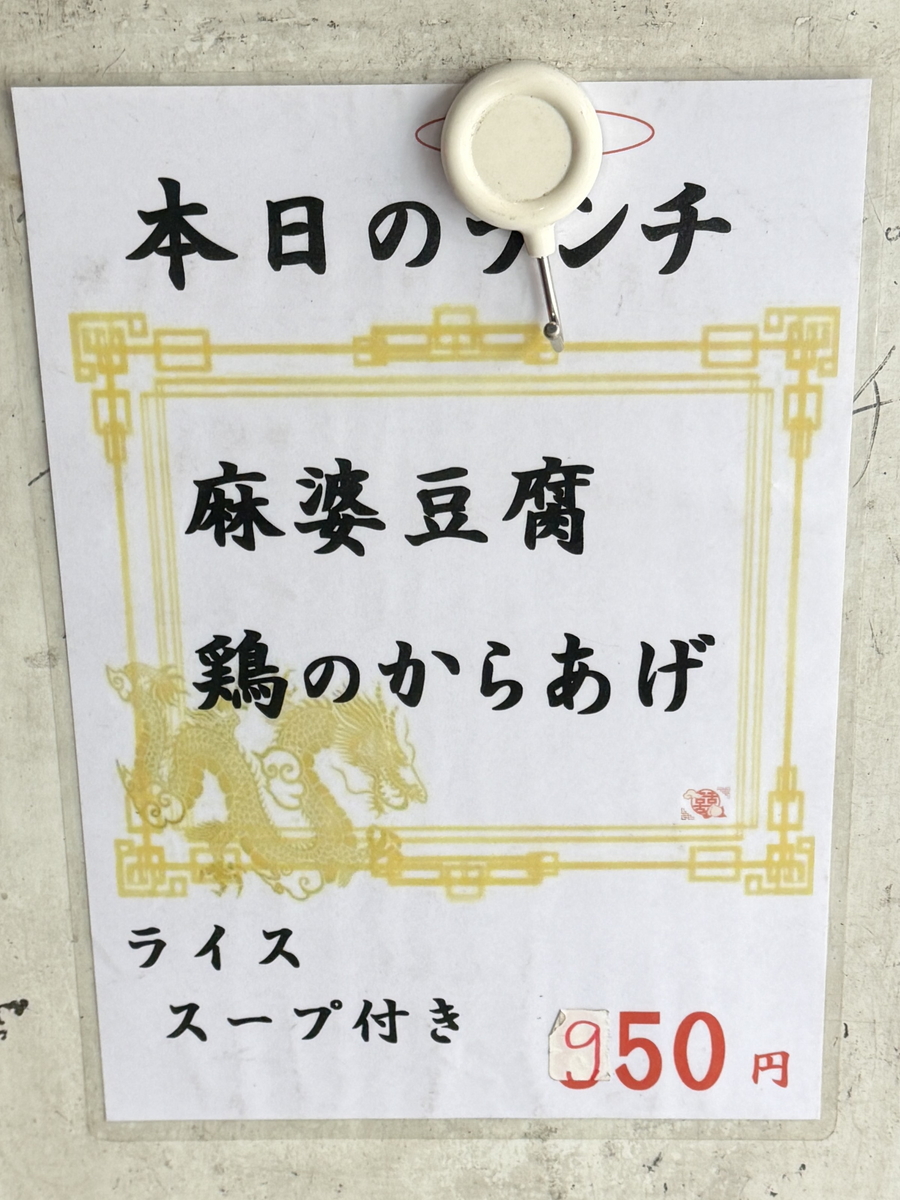 本日のランチ
麻婆豆腐
鶏のからあげ
ライス
スープ付き
950円